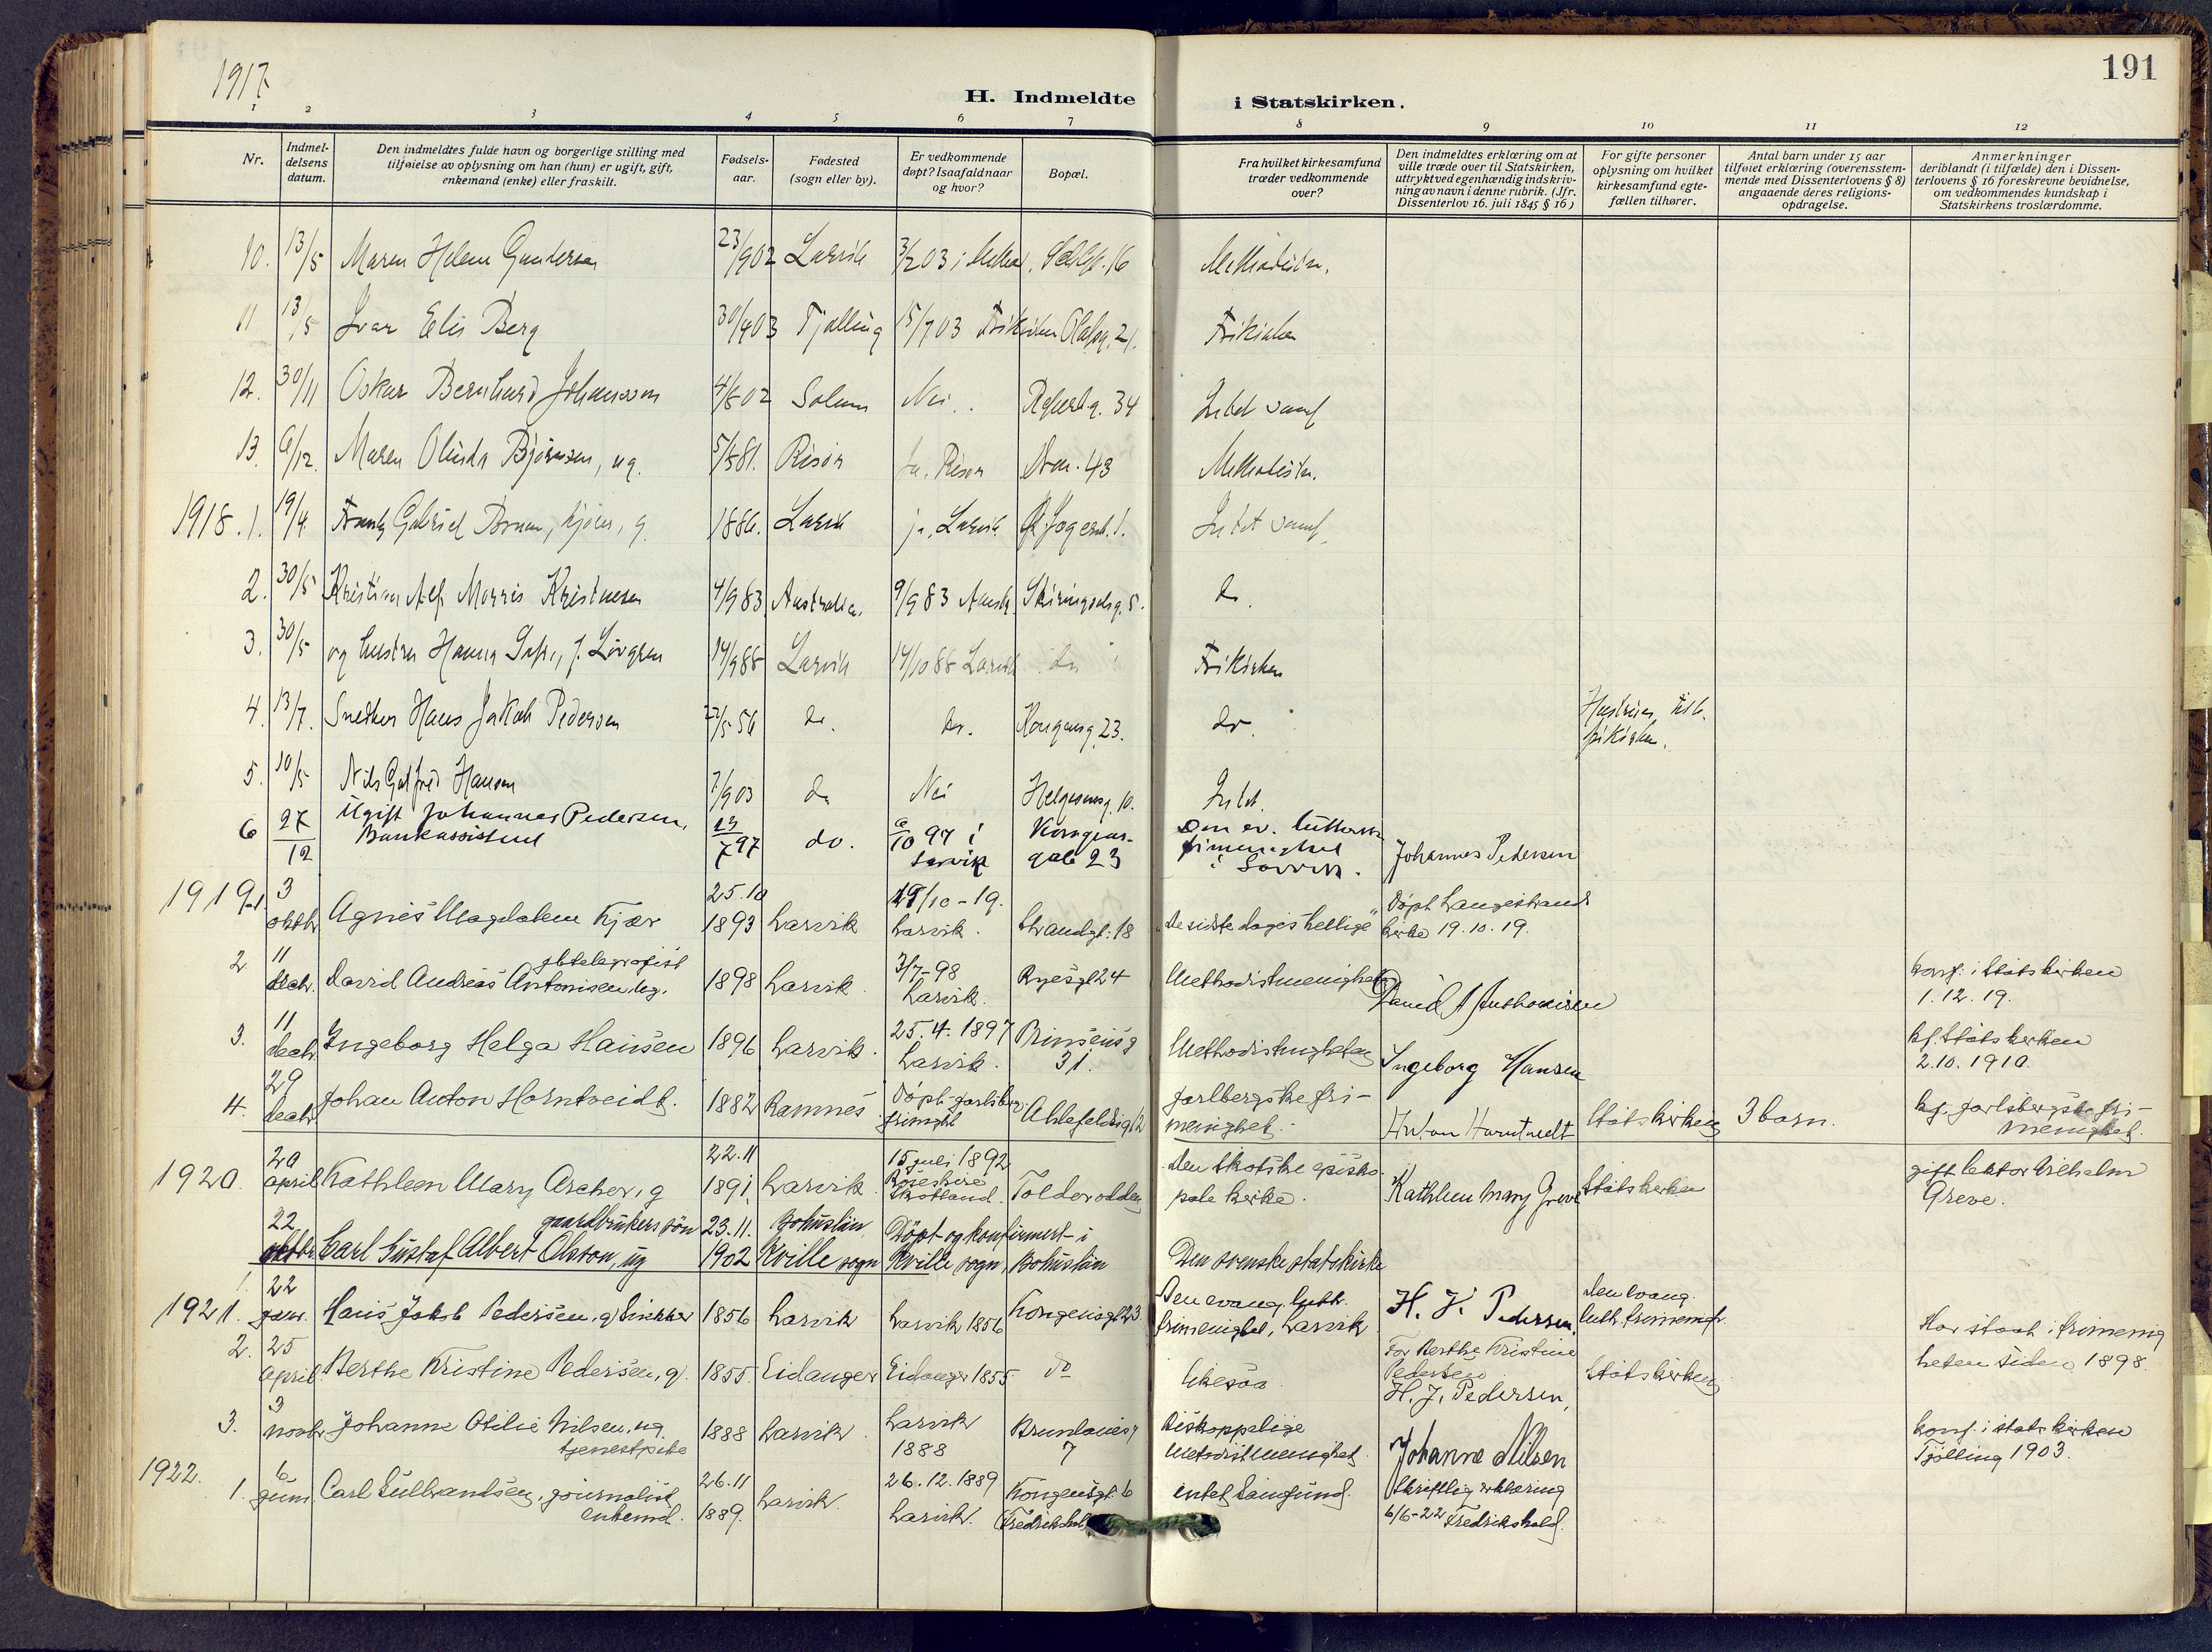 1917.
191
H. Indmeldte i Statskirken.
1 2 3 4 5 6 7 8 9 10 11 12
Nr.
Indmel-
delsens
datum.
Den indmeldtes fulde navn og borgerlige stilling med
tilføielse av oplysning om han (hun) er ugift, gift,
enkemand (enke) eller fraskilt.
Fødsels-
aar.
Fødested
(sogn eller by).
Er vedkommende
døpt? Isaafald naar
og hvor?
Bopæl.
Fra hvilket kirkesamfund
træder vedkommende
over?
Den indmeldtes erklæring om at
ville træde over til Statskirken,
uttrykt ved egenhændig indskriv-
ning av navn i denne rubrik. (Jfr.
Dissenterlov 16. juli 1845 § 16)
For gifte personer
oplysning om hvilket
kirkesamfund egte-
fællen tilhører.
Antal barn under 15 aar
tilføiet erklæring (overensstem-
mende med Dissenterlovens § 8)
angaaende deres religions-
opdragelse.
Anmerkninger
deriblandt (i tilfælde) den i Dissen-
terlovens § 16 foreskrevne bevidnelse,
om vedkommendes kundskap i
Statskirkens troslærdomme.
10. 13/5 Maren Helene Gundersen 23/9 02 Larvik 3/2 03 i Methodistk.
11 13/5 Ivar Elis Berg 30/4 03 Tjølling 15/7 03 Frikirken Olafsg. 21. Frikirken
12. 30/11 Oskar Bernhard Johansson 4/8 02 Solum Nei. 34 Intet samf
13. 9/12. Maren Olinda Bjørnsen, ug. 5/5 81. Risør ja, Risør 43 Methodistk.
1918. 1. 19/4 Frantz Gabriel g. 1886. Larvik ja, Larvik 1. Intet samf.
2. 30/5 Kristian Alf Morris Kristensen 4/9 83 Australia. 9/9 83 Skiringsalsg. 8. do.
3. 30/5 og hustru Hanna f. Løvgren 14/9 88 Larvik 14/10 88 Larvik do Frikirken
4. 13/7. Snedker Hans Jakob Pedersen 22/5 56 do. do. Kongensg. 23. do. Hustruen tilh.
frikirken.
5. 10/5 Nils Hansen 7/9 03 do Nei Helgesensg. 10. Intet.
6 27/12 Ugift Johannes Pedersen,
Bankassistent 13/7 97 do. 6/10 97 i
Larvik Kongens-
gate 23 Den ev. lutherske
frimenighet
i Larvik. Johannes Pedersen
1919. 1 3
oktbr Agnes Magdalene Kjær 25.10
1893 Larvik 19/10-19.
Larvik. Strandgt. 18 "De sidste dages hellige" Døpt Langestrands
kirke 19.10.19.
2 11
decbr. David Andreas Antonisen, ug. jbtelegrafist 1898 Larvik 3/7-98
Larvik. Ryesgt 24 Methodistmenigheten David A Anthonisen konf. i Statskirken
1.12.19.
3. 11
decbr. Ingeborg Helga Hansen 1896 Larvik. 25.4.1897
Larvik. Prinsensg
31. Methodistmgheten Ingeborg Hansen kf. Statskirken
2.10.1910.
4. 29
decbr. Johan Anton Horntveidt. 1882 Ramnes Døpt Jarlsberg
frimght Ahlefeldtsg 12 Jarlbergske fri-
menighet. Anton Horntvedt Statskirken 3 barn. kf. Jarlsbergske fri-
menighet.
1920. 20
april Kathleen Mary Archer, g 22.11
1891 Larvik. 15 juli 1892
Rosshire
Skotland. Tolderodden Den skotske episko-
pale kirke. Kathleen Mary Greve Statskirken gift lektor Wilhelm
Greve.
22
oktbr Carl Gustaf Albert Olsson, ug gaardbrukers søn 23.11.
1902 Bohuslän
Kville sogn Døpt og konfirmert i
Kville sogn, Bohuslän Den svenske statskirke
1921. 1. 22
janr. Hans Jakob Pedersen, g. Snekker 1856 Larvik Larvik 1856 Kongensgt 23 Den evang. luth.
frimenighet, Larvik H. J. Pedersen. Den evang.
luth. frimenigh.
2. 25
april. Berthe Kristine Pedersen, g. 1855. Eidanger Eidanger 1855 do likesaa For Berthe Kristine
Pedersen
H. J. Pedersen, Statskirken Har staat i frimenig
heten siden 1898.
3. 3
novbr Johanne Otilie Nilsen, ug.
tjenestpike 1888 Larvik. Larvik
1888 Brunlanesg
7 Biskoppelige
metodistmenighet. Johanne Nilsen konf. i statskirken
Tjølling 1903.
1922. 1. 6
juni Carl Gulbrandsen, journalist
enkemd. 26.11
1889. Larvik. 26.12.1889
Larvik. Kongensgt. 6
(Fredrikshald intet samfund. Skriftlig erklæring
6/6-22 Fredrikshald.